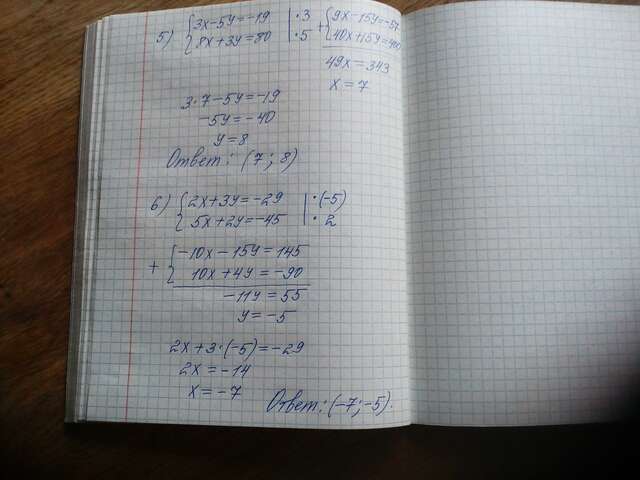 5) {3x-5y=-19 | ·3 + {9x-15y=-57
8x+3y=80 | ·5 40x+15y=400
49x=343
x=7
3·7-5y=-19
-5y=-40
y=8
Ответ: (7; 8)
6) {2x+3y=-29 | ·(-5)
5x+2y=-45 | · 2
+ {-10x-15y=145
10x+4y=-90
-11y=55
y=-5
2x+3·(-5)=-29
2x=-14
x=-7
Ответ: (-7;-5).